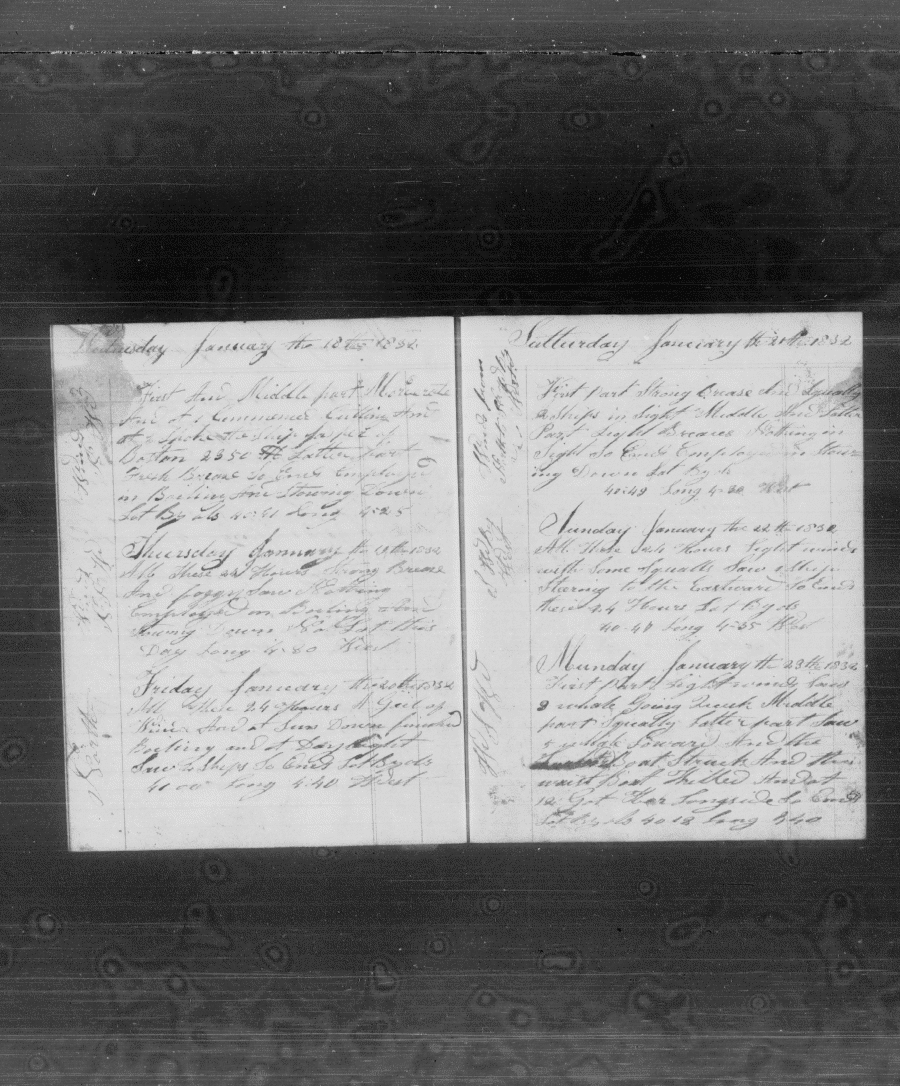 Wednesday January the 18th 1832
First And Middle part Moderate
And at 1 Commence Cutting And
at 2 Spoke the Ship of
Boston 2350 Latter part
Fresh Breaze So Ends Employed
in Boiling And Stowing Down
Lat By obs Long 4-25
Thursday January the 19th 1832
All These 24 Hours Strong Breaze
And foggy Saw Nothing
Employed in Boiling And
Stowing Down No Lat this
Day Long West
Friday January the 20th 1832
All These 24 Hours A Gail of
Wind And at Sun Down finished
Boiling and A Day Light
Saw Ships So Ends Lat By obs
41 00 Long 4-40 West
Satturday January the 21th 1832
First part Strong Breaze And Squally
2 Ships in Sight Middle And Latter
Part Light Breazes Nothing in
Sight So Ends Employed in Stow
ing Down Lat By ob
40:49 Long 4-30 West
Sunday January the 22th 1832
All These 24 Hours Light winds
with Some Squalls Saw 1 Ship
Steering to the Eastward So Ends
these 24 Hours Lat By obs
Long 4-35 West
Munday January the 23th 1832
First Part Light winds Saw
2 whale Going Quick Middle
part Squally Latter part Saw
whale Loward And the
Boat Struck And the
waist Boat Killed And at
12 Got Her Longside So Ends
Lat By obs 40 18 Long 4 40